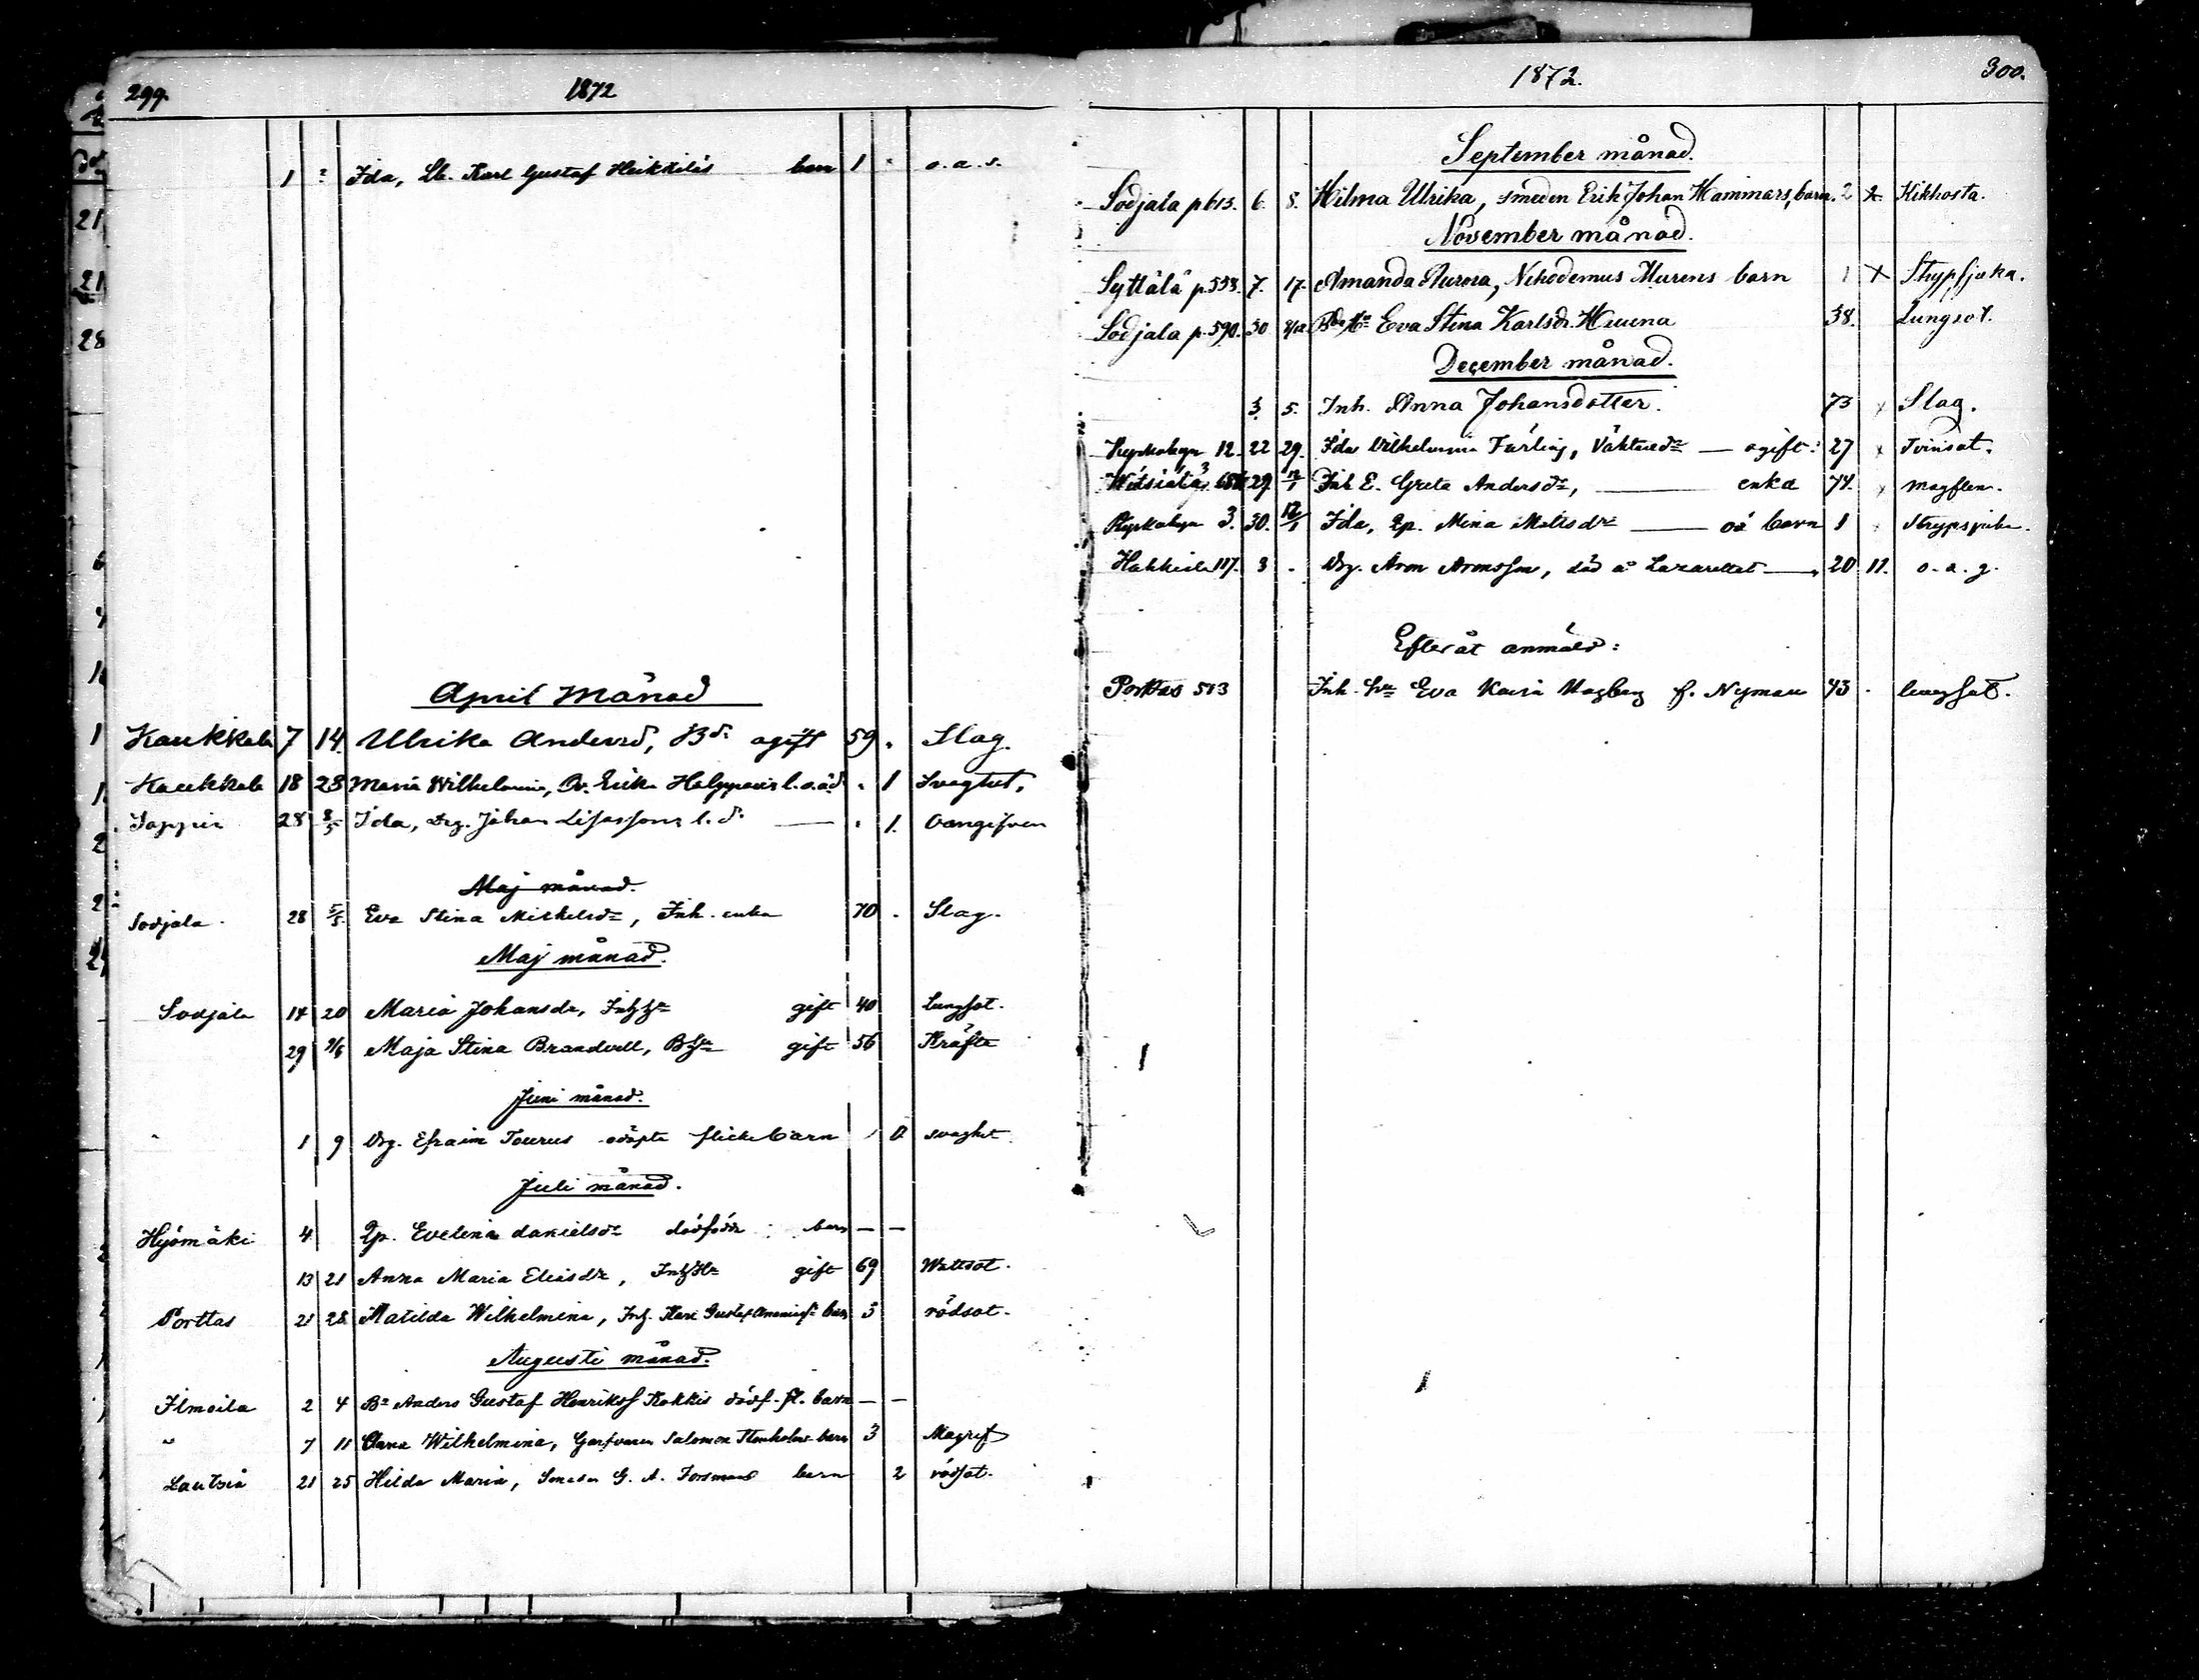 299. 1872
1 Ida, Karl Gustaf Heikkiläs barn 1 o.a.s.
April Månad
Kaukkala 7 14. Ulrika Andersd, Bd. ogift 59 Slag.
Kaukkala 18 28 Maria Wilhelmina, 1 Svaghet.
Sappi 28 Ida, Drg. Johan l. d. 1. Oangifven
Maj månad.
Sodjala 28 5/5 Eva Stina Mickelsdr, Inh. enka 70 Slag.
Maj månad.
Sodjala 14 20 Maria Johansdr, gift 40 Lungsot.
29 Maja Stina Brandell, gift 56 Kräfta
Juni månad.
1 9 Drg. Efraim Tourus odöpta flickebarn 0 svaghet
Juli månad.
Hyömäki 4 Pp. Evelina danielsdr dödfödda barn — —
13 21 Anna Maria Eliasdr, gift 69 Wattsot.
Porttas 21 28 Matilda Wilhelmina, Gustaf barn 3 rödsot.
Augusti månad.
Ilmoila 2 4 Anders Gustaf Henrikss Kokkis dödf. fl. barn — —
" 7 11 Anna Wilhelmina, Garfvaren Salomon barn 3 Magref
Lautsia 21 25 Hilda Maria, G. A. Forsmans barn 2 rödsot.
1872. 300.
September månad.
Sodjala p 613. 6. 8. Hilma Ulrika, smeden Erik Johan Hammars, barn. 2 x Kikhosta.
November månad.
Syttälä p. 558. 7. 17. Amanda Aurora, Nikodemus Murens barn 1 x Strypsjuka.
Sodjala p. 590. 30 Eva Stina Karlsdr. 38. Lungsot.
December månad.
3. 5. Inh. Anna Johansdotter. 73 x Slag.
Kyrkobyn 12. 22 29. Ida Wilhelmina Färling, ogift: 27 x Tvinsot.
29 Inh E. Greta Andersdr, — enka 74. x magflen.
Kyrkobyn 3. 30. 12/1 Ida, Pp. Mina Mattsdr — oä barn 1 x Strypsjuka.
Hakkila 117. 3 - Drg. Aron Aronsson, död å Lazarettet — 20 11. o. a. g.
Efteråt anmäld:
Porttas 513 Inh. Eva Kajsa Hagberg f. Nyman 43 lungsot.